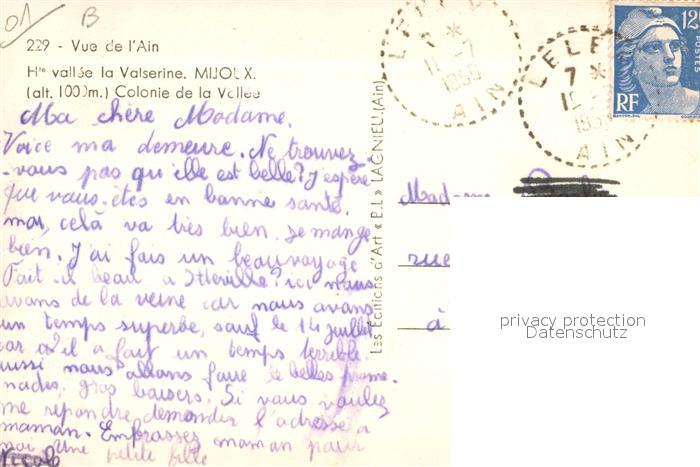 01 B
229 - Vue de l'Ain
Hte vallée la Valserine. MIJOUX.
(alt. 1000m.) Colonie de la Vallée
Ma chère Madame.
Voice ma demeure. Ne trouvez
-vous pas qu'elle est belle? J'espère
que vous-êtes en banne santé.
moi, celà va très bien. Je mange
bien. J'ai fais un beau voyage
Fait-il beau a Itteville? ici nous
avans de la veine car nous avans
un temps superbe, sauf le 14 juillet
car a'il a fait un temps terrible.
aussi nous allans faire de belles prome-
nades, gros baisers. Si vous vaulez
me répandre demander l'adresse a
maman. Embrassez maman pour
moi Une petite fille
Nicole
Les Editions d'Art « P.L » LAGNIEU (Ain)
Madame
rue
à
LELEX
11-7
1950
AIN
LELEX
7 *
AIN
12F
POSTES
RF
privacy protection
Datenschutz